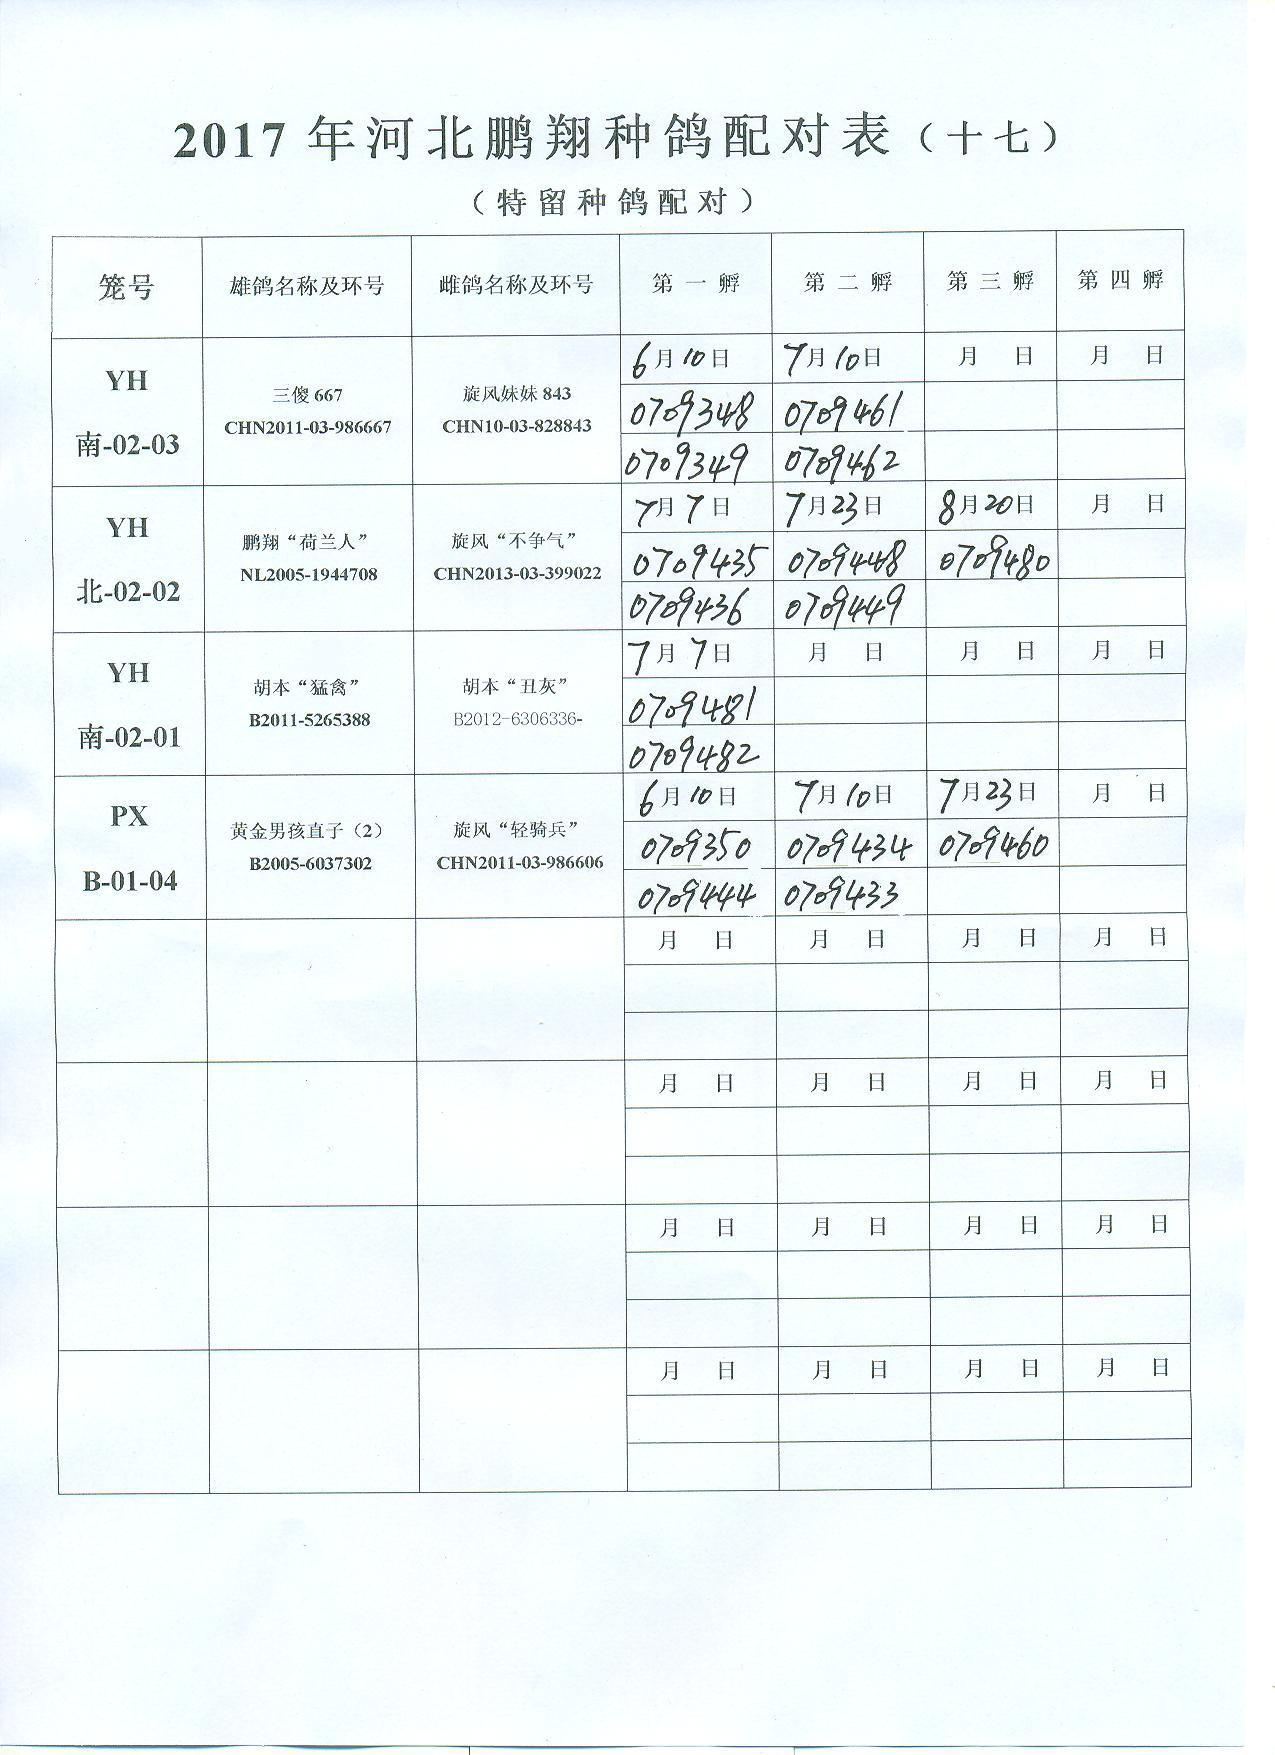 2017年河北鹏翔种鸽配对表（十七）
（特留种鸽配对）
笼号 雄鸽名称及环号 雌鸽名称及环号 第一孵 第二孵 第三孵 第四孵
YH 南-02-03
三傻 667
CHN2011-03-986667
旋风妹妹 843
CHN10-03-828843
6月10日 7月10日 月 日 月 日
0709348 0709461
0709349 0709462
YH 北-02-02
鹏翔“荷兰人”
NL2005-1944708
旋风“不争气”
CHN2013-03-399022
7月7日 7月23日 8月20日 月 日
0709435 0709448 0709480
0709436 0709449
YH 南-02-01
胡本“猛禽”
B2011-5265388
胡本“丑灰”
B2012-6306336-
7月7日 月 日 月 日 月 日
0709481
0709482
PX B-01-04
黄金男孩直子（2）
B2005-6037302
旋风“轻骑兵”
CHN2011-03-986606
6月10日 7月10日 7月23日 月 日
0709350 0709434 0709460
0709444 0709433
月 日 月 日 月 日 月 日
月 日 月 日 月 日 月 日
月 日 月 日 月 日 月 日
月 日 月 日 月 日 月 日